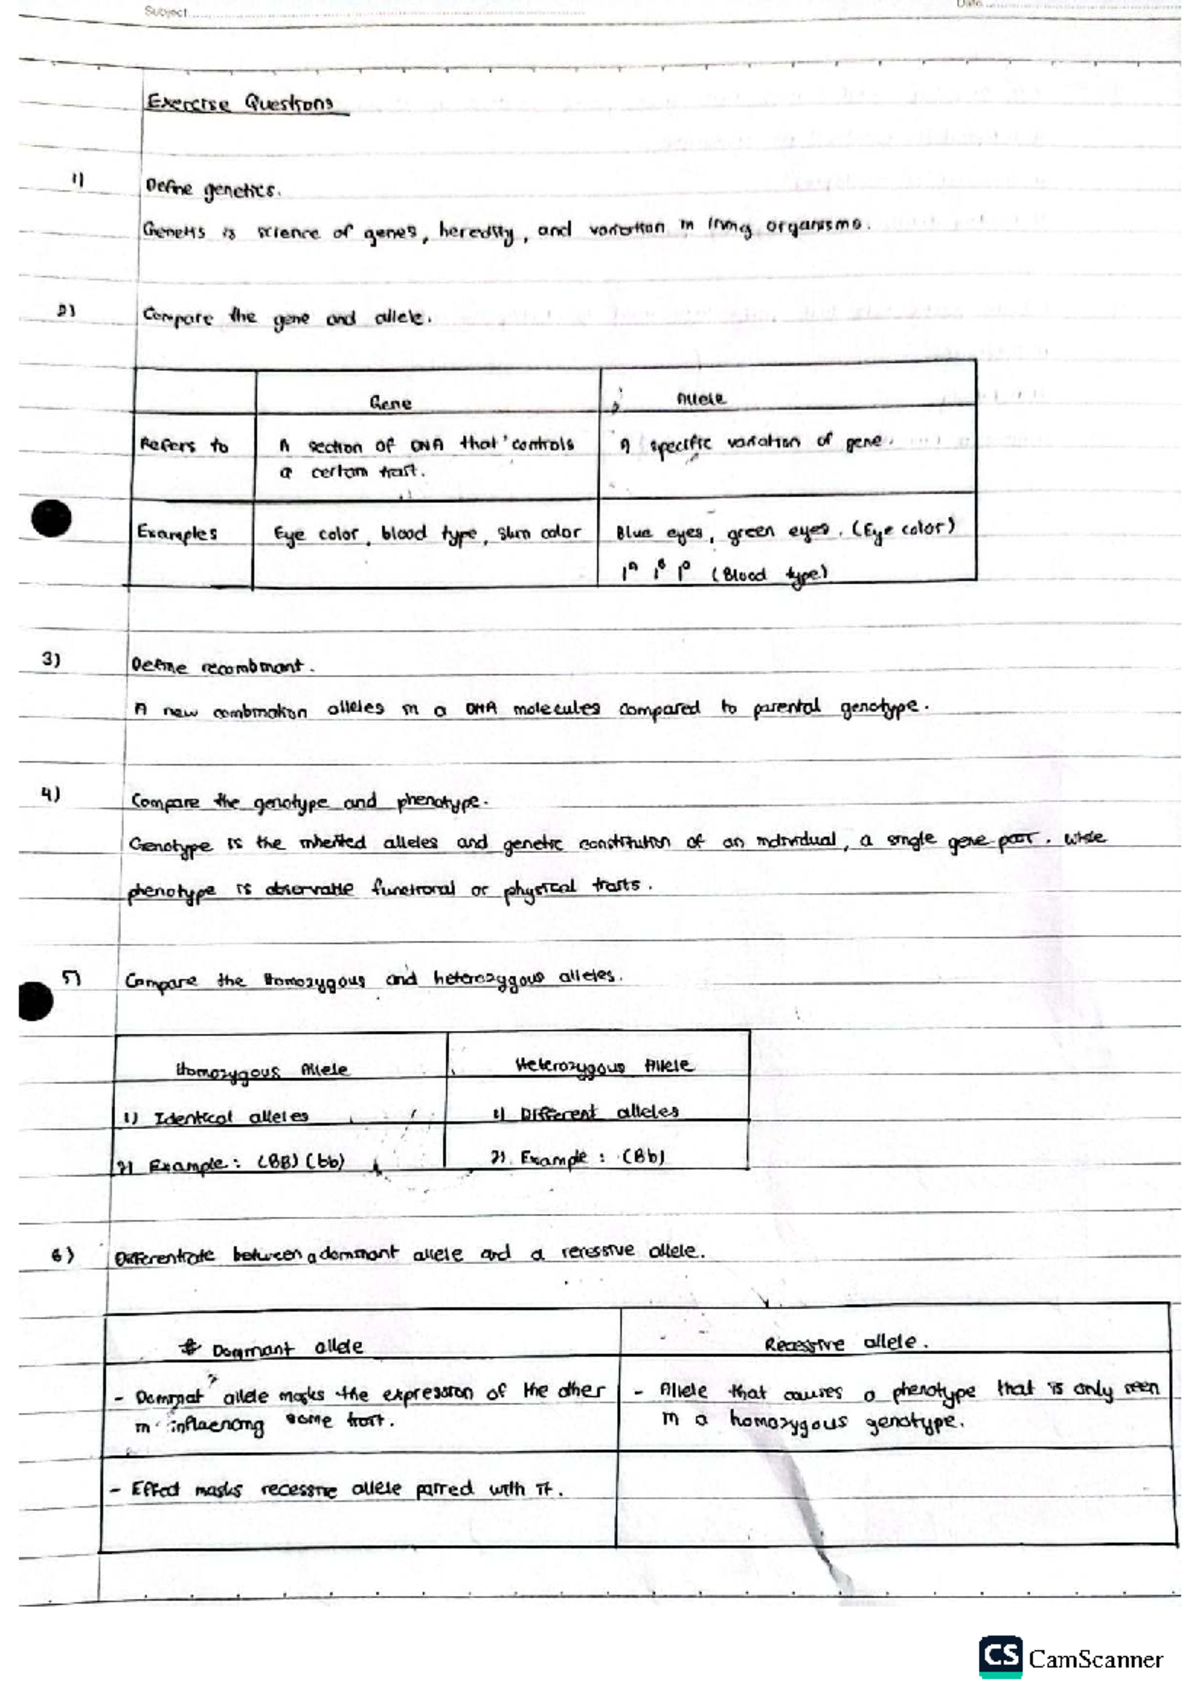 Subject
Date
Exercise Questions
1)
Define genetics.
Genetis is science of genes, heredity, and variation in living organisms.
2)
Compare the gene and allele.
Gene
Allele
Refers to
A section of DNA that controls
a certain trait.
A specific variation of gene.
Examples
Eye color, blood type, skin color
Blue eyes, green eyes. (Eye color)
Iᴬ Iᴮ Iᴼ (Blood type)
3)
Define recombinant.
A new combination alleles in a DNA molecules compared to parental genotype.
4)
Compare the genotype and phenotype.
Genotype is the inherited alleles and genetic constitution of an individual, a single gene pair. While
phenotype is observable functional or physical traits.
5)
Compare the Homozygous and heterozygous alleles.
Homozygous Allele
Heterozygous Allele
1) Identical alleles
1) Different alleles
2) Example : (BB) (bb)
2) Example : (Bb)
6)
Differentiate between a dominant allele and a recessive allele.
Dominant allele
Recessive allele.
- Dominat allele masks the expression of the other
in influencing some trait.
- Allele that causes a phenotype that is only seen
in a homozygous genotype.
- Effect masks recessive allele paired with it.
CS CamScanner